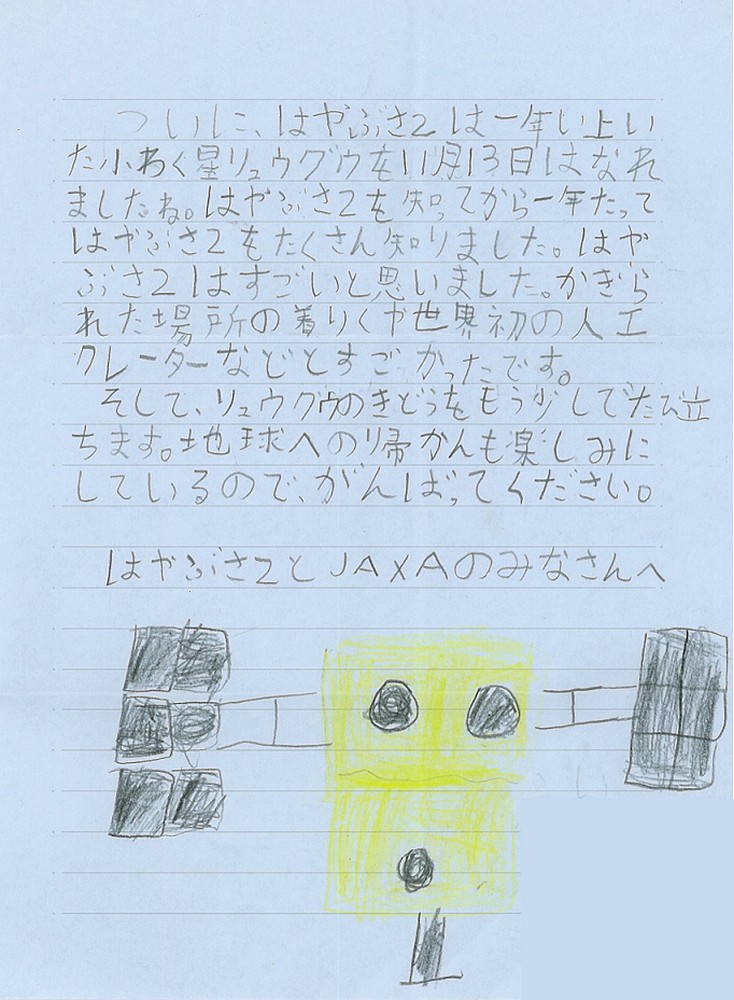 ついに、はやぶさ2は一年い上い
た小わく星リュウグウを11月13日はなれ
ましたね。はやぶさ2を知ってから一年たって
はやぶさ2をたくさん知りました。はや
ぶさ2はすごいと思いました。かぎら
れた場所の着りくや世界初の人工
クレーターなどとすごかったです。
そして、リュウグウのきどうをもう少しでたび立
ちます。地球への帰かんも楽しみに
しているので、がんばってください。
はやぶさ2とJAXAのみなさんへ